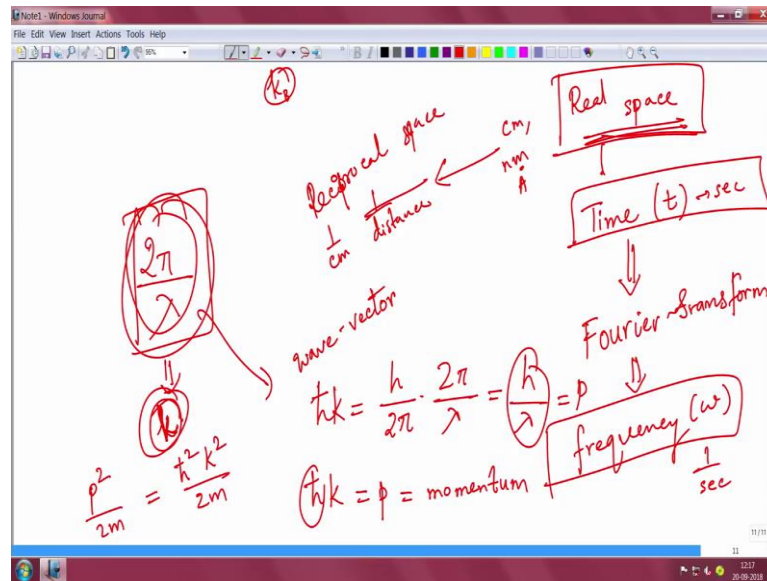 Note1 - Windows Journal
File Edit View Insert Actions Tools Help
95%
B I
k_B
Real space
cm,
nm
Å
Reciprocal space
1/cm
1/distance
Time (t) → sec
⇓
Fourier transform
⇓
frequency (ω)
1/sec
2π/λ
⇓
k
wave-vector
ħk = h/2π · 2π/λ = h/λ = p
ħk = p = momentum
p²/2m = ħ²k²/2m
11/11
11
12:17
20-09-2018